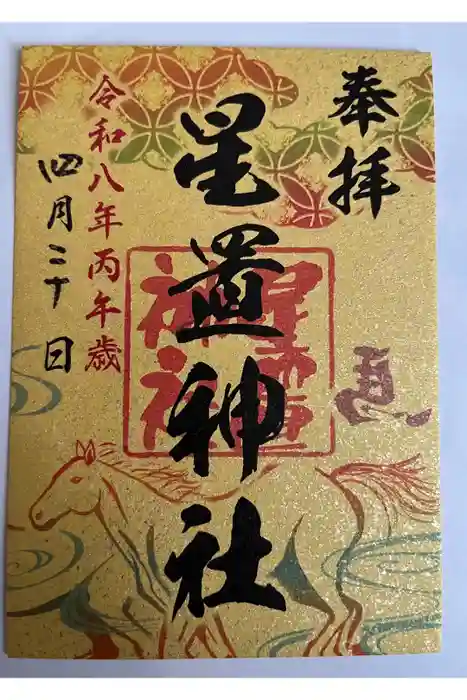 奉拝
星置神社
星置神社
馬
令和八年丙午歳
四月二十日